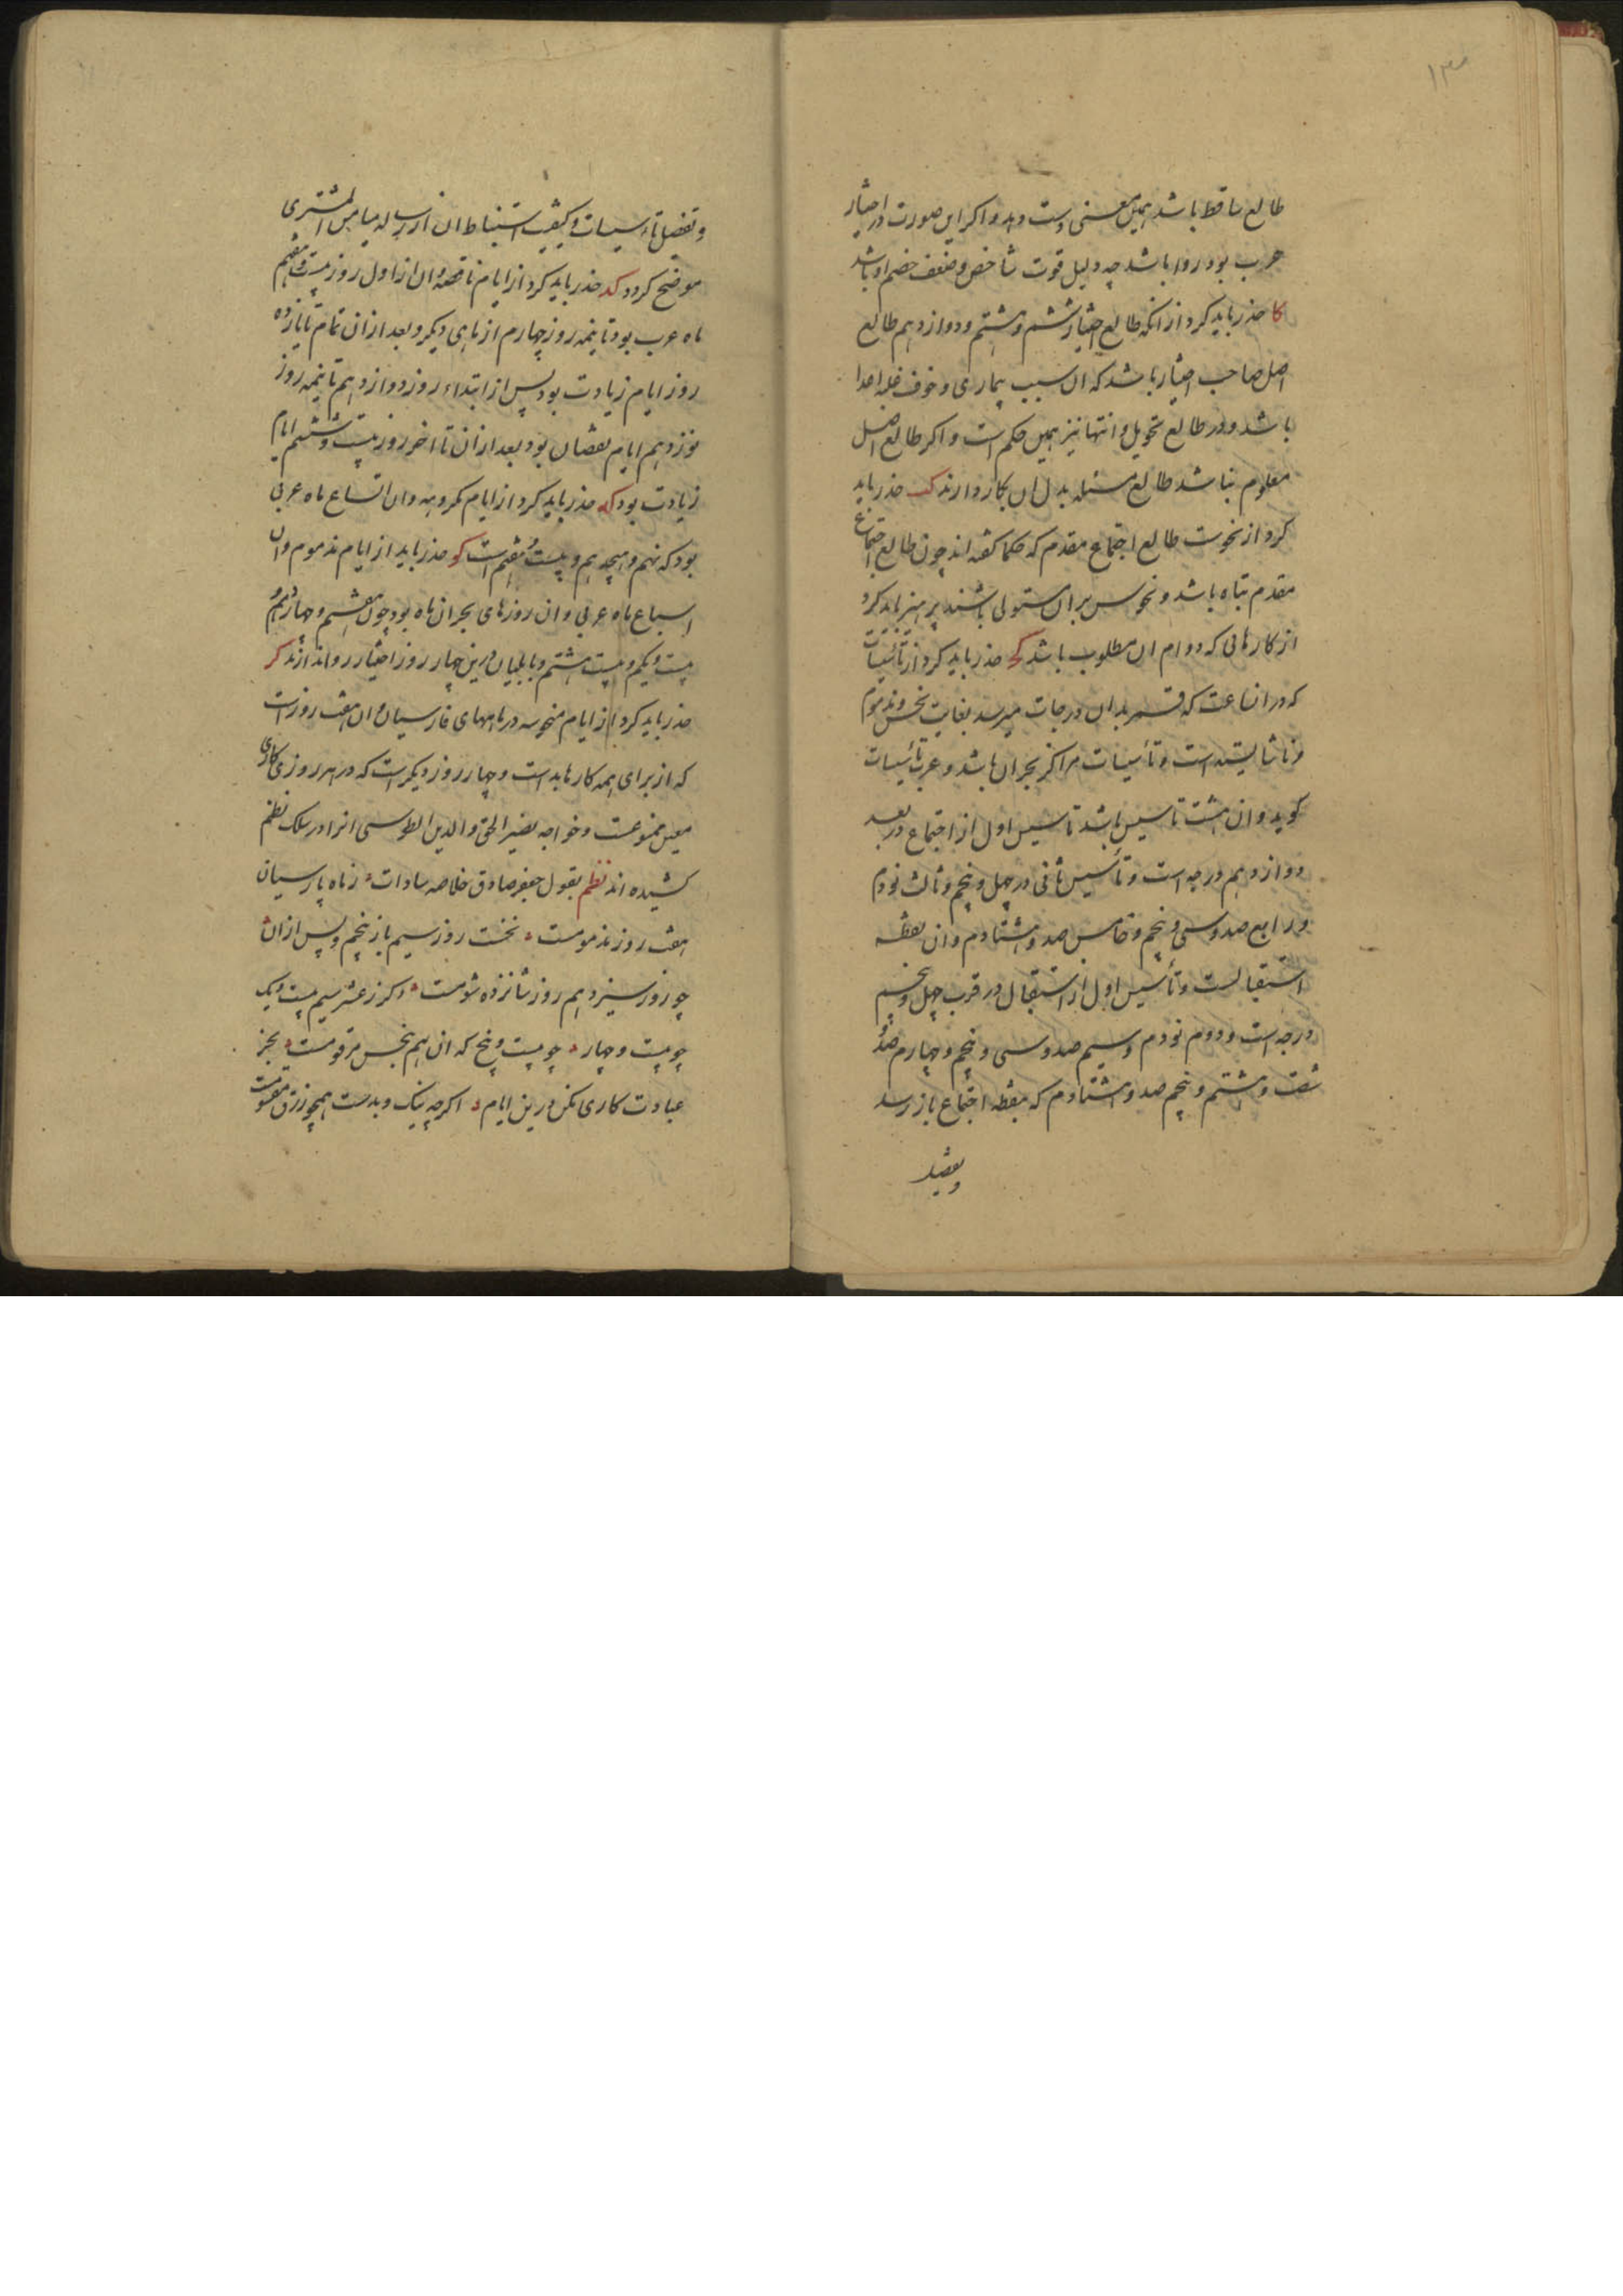 ۱۳
طالع ساقط باشد همین معنی دست دهد و اکر این صورت در اختیار
حرب بود روا باشد چه دلیل قوت شاخص و ضعف خصم او باشد
کا حذر باید کرد از انکه طالع اختیار ششم و هشتم و دوازدهم طالع
اصل صاحب اختیار باشد که ان سبب بیماری و خوف غلبه اعدا
باشد و در طالع تحویل و انتها نیز همین حکم است و اکر طالع اصل
معلوم نباشد طالع مسئله بدل ان بکار دارند کب حذر باید
کرد از نحوست طالع اجتماع مقدم که حکما کفته اند چون طالع اجتماع
مقدم تباه باشد و نحوس بران مستولی باشند پرهیز باید کرد
از کارهائی که دوام ان مطلوب باشد کج حذر باید کرد از
که در ان ساعت که قمر بدان درجات میرسد بغایت نحس و مذموم
و ناشایسته است و تأسیسات مراکز بحران باشد و عرب تأسیسات
کوید و ان هشت تاسیس باشد تاسیس اول از اجتماع در بعد
دوازدهم درجه است و تأسیس ثانی در چهل و پنجم و ثالث نودم
و رابع صد و سی و پنجم و خامس صد و هشتادم و ان نقطه
استقبالست و تأسیس اول از استقبال در قرب چهل و پنجم
درجه است و دوم نودم و سیم صد و سی و پنجم و چهارم صد و
شصت و هشتم و پنجم صد و هشتادم که بنقطه اجتماع باز رسد
وتفصیل
و تفصیل تأسیسات و کیفیت استنباط ان از رساله میامن المشتری
موضح کردد کد حذر باید کرد از ایام ناقصه و ان از اول روز بیست و هفتم
ماه عرب بود تا نیمه روز چهارم از ماهی دیکر و بعد از ان تمام تا یازده
روز ایام زیادت بود پس از ابتداء روز دوازدهم تا نیمه روز
نوزدهم ایام نقصان بود بعد از ان تا اخر روز بیست و ششم ایام
زیادت بود که حذر باید کرد از ایام مکروهه و ان اتساع ماه عربی
بود که نهم و هیجدهم و بیست و هفتم است کو حذر باید از ایام مذموم و ان
اسباع ماه عربی و ان روزهای بحران ماه بود چون هفتم و چهاردهم و
بیست و یکم و بیست و هشتم و بابلیان درین چهار روز اختیار روا ندارند کز
حذر باید کرد از ایام منحوسه در ماههای فارسیان و ان هفت روز است
که از برای همه کارها بد است و چهار روز دیکر است که در هر روزی کاری
معین ممنوعست و خواجه نصیر الحق و الدین الطوسی انرا در سلک نظم
کشیده اند نظم بقول جعفر صادق خلاصه سادات ز ماه پارسیان
هفت روز مذمومست نخست روز سیم باز پنجم و پس از ان
چو روز سیزدهم روز شانزده شومست دکر ز عشر سیم بیست و یک
چو بیست و چهار چو بیست و پنج که ان هم بنحس مرقومست بجز
عبادت کاری مکن درین ایام اکرچه نیک و بدست همچو رزق مقسومست